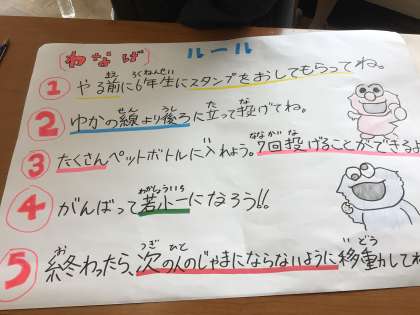 わなげ ルール
① やる前に6年生にスタンプをおしてもらってね。
② ゆかの線より後ろに立って投げてね。
③ たくさんペットボトルに入れよう。7回投げることができるよ
④ がんばって若小一になろう!!
⑤ 終わったら、次の人のじゃまにならないように移動してね